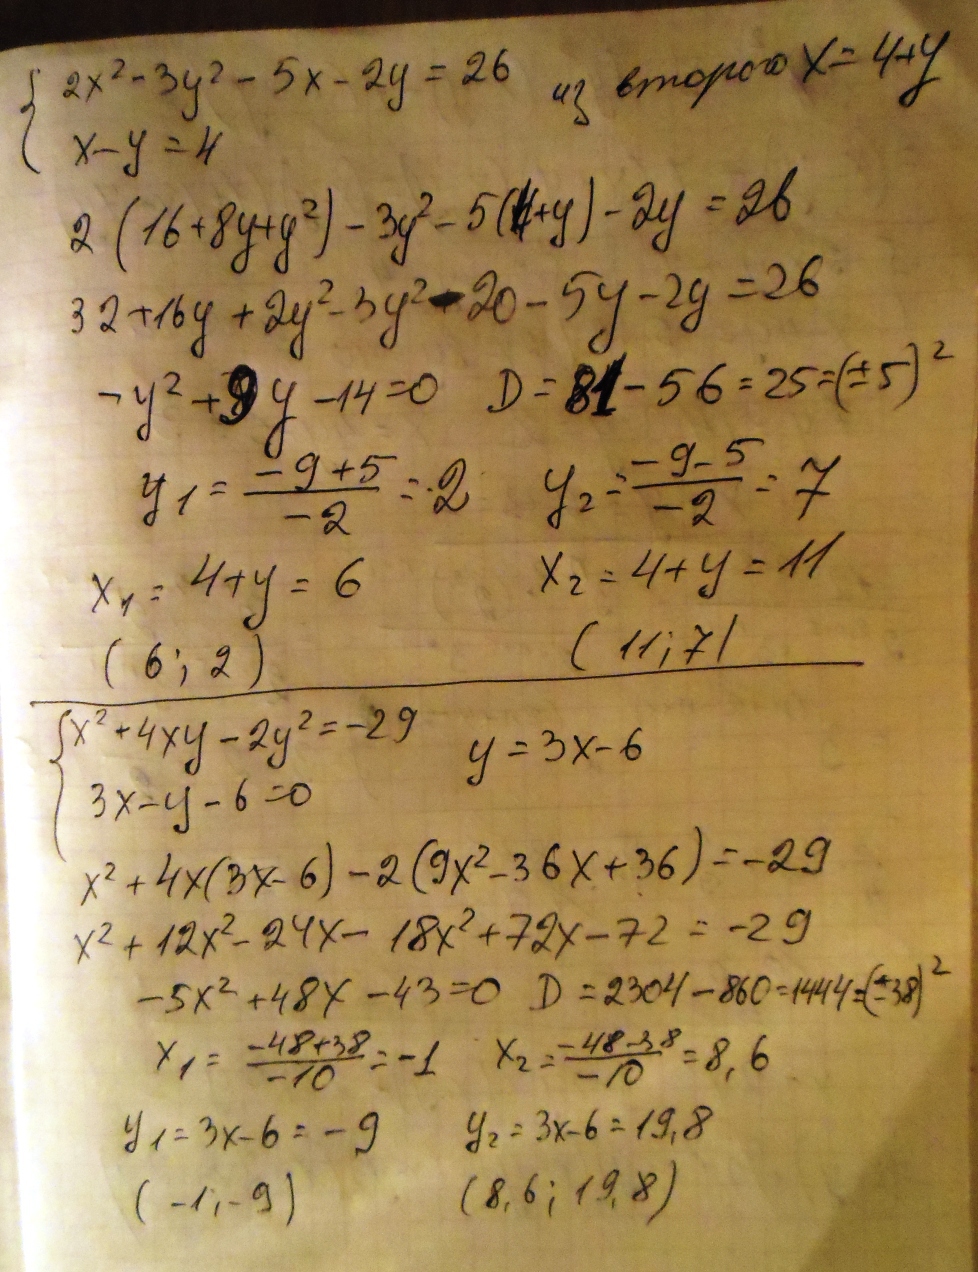 { 2x² - 3y² - 5x - 2y = 26 из второго x = 4+y
x - y = 4
2 (16 + 8y + y²) - 3y² - 5(4+y) - 2y = 26
32 + 16y + 2y² - 3y² - 20 - 5y - 2y = 26
-y² + 9y - 14 = 0 D = 81 - 56 = 25 = (±5)²
y₁ = (-9+5)/(-2) = 2 y₂ = (-9-5)/(-2) = 7
x₁ = 4+y = 6 x₂ = 4+y = 11
(6; 2) (11; 7)
{ x² + 4xy - 2y² = -29 y = 3x-6
3x - y - 6 = 0
x² + 4x(3x-6) - 2(9x² - 36x + 36) = -29
x² + 12x² - 24x - 18x² + 72x - 72 = -29
-5x² + 48x - 43 = 0 D = 2304 - 860 = 1444 = (±38)²
x₁ = (-48+38)/(-10) = -1 x₂ = (-48-38)/(-10) = 8,6
y₁ = 3x-6 = -9 y₂ = 3x-6 = 19,8
(-1; -9) (8,6; 19,8)